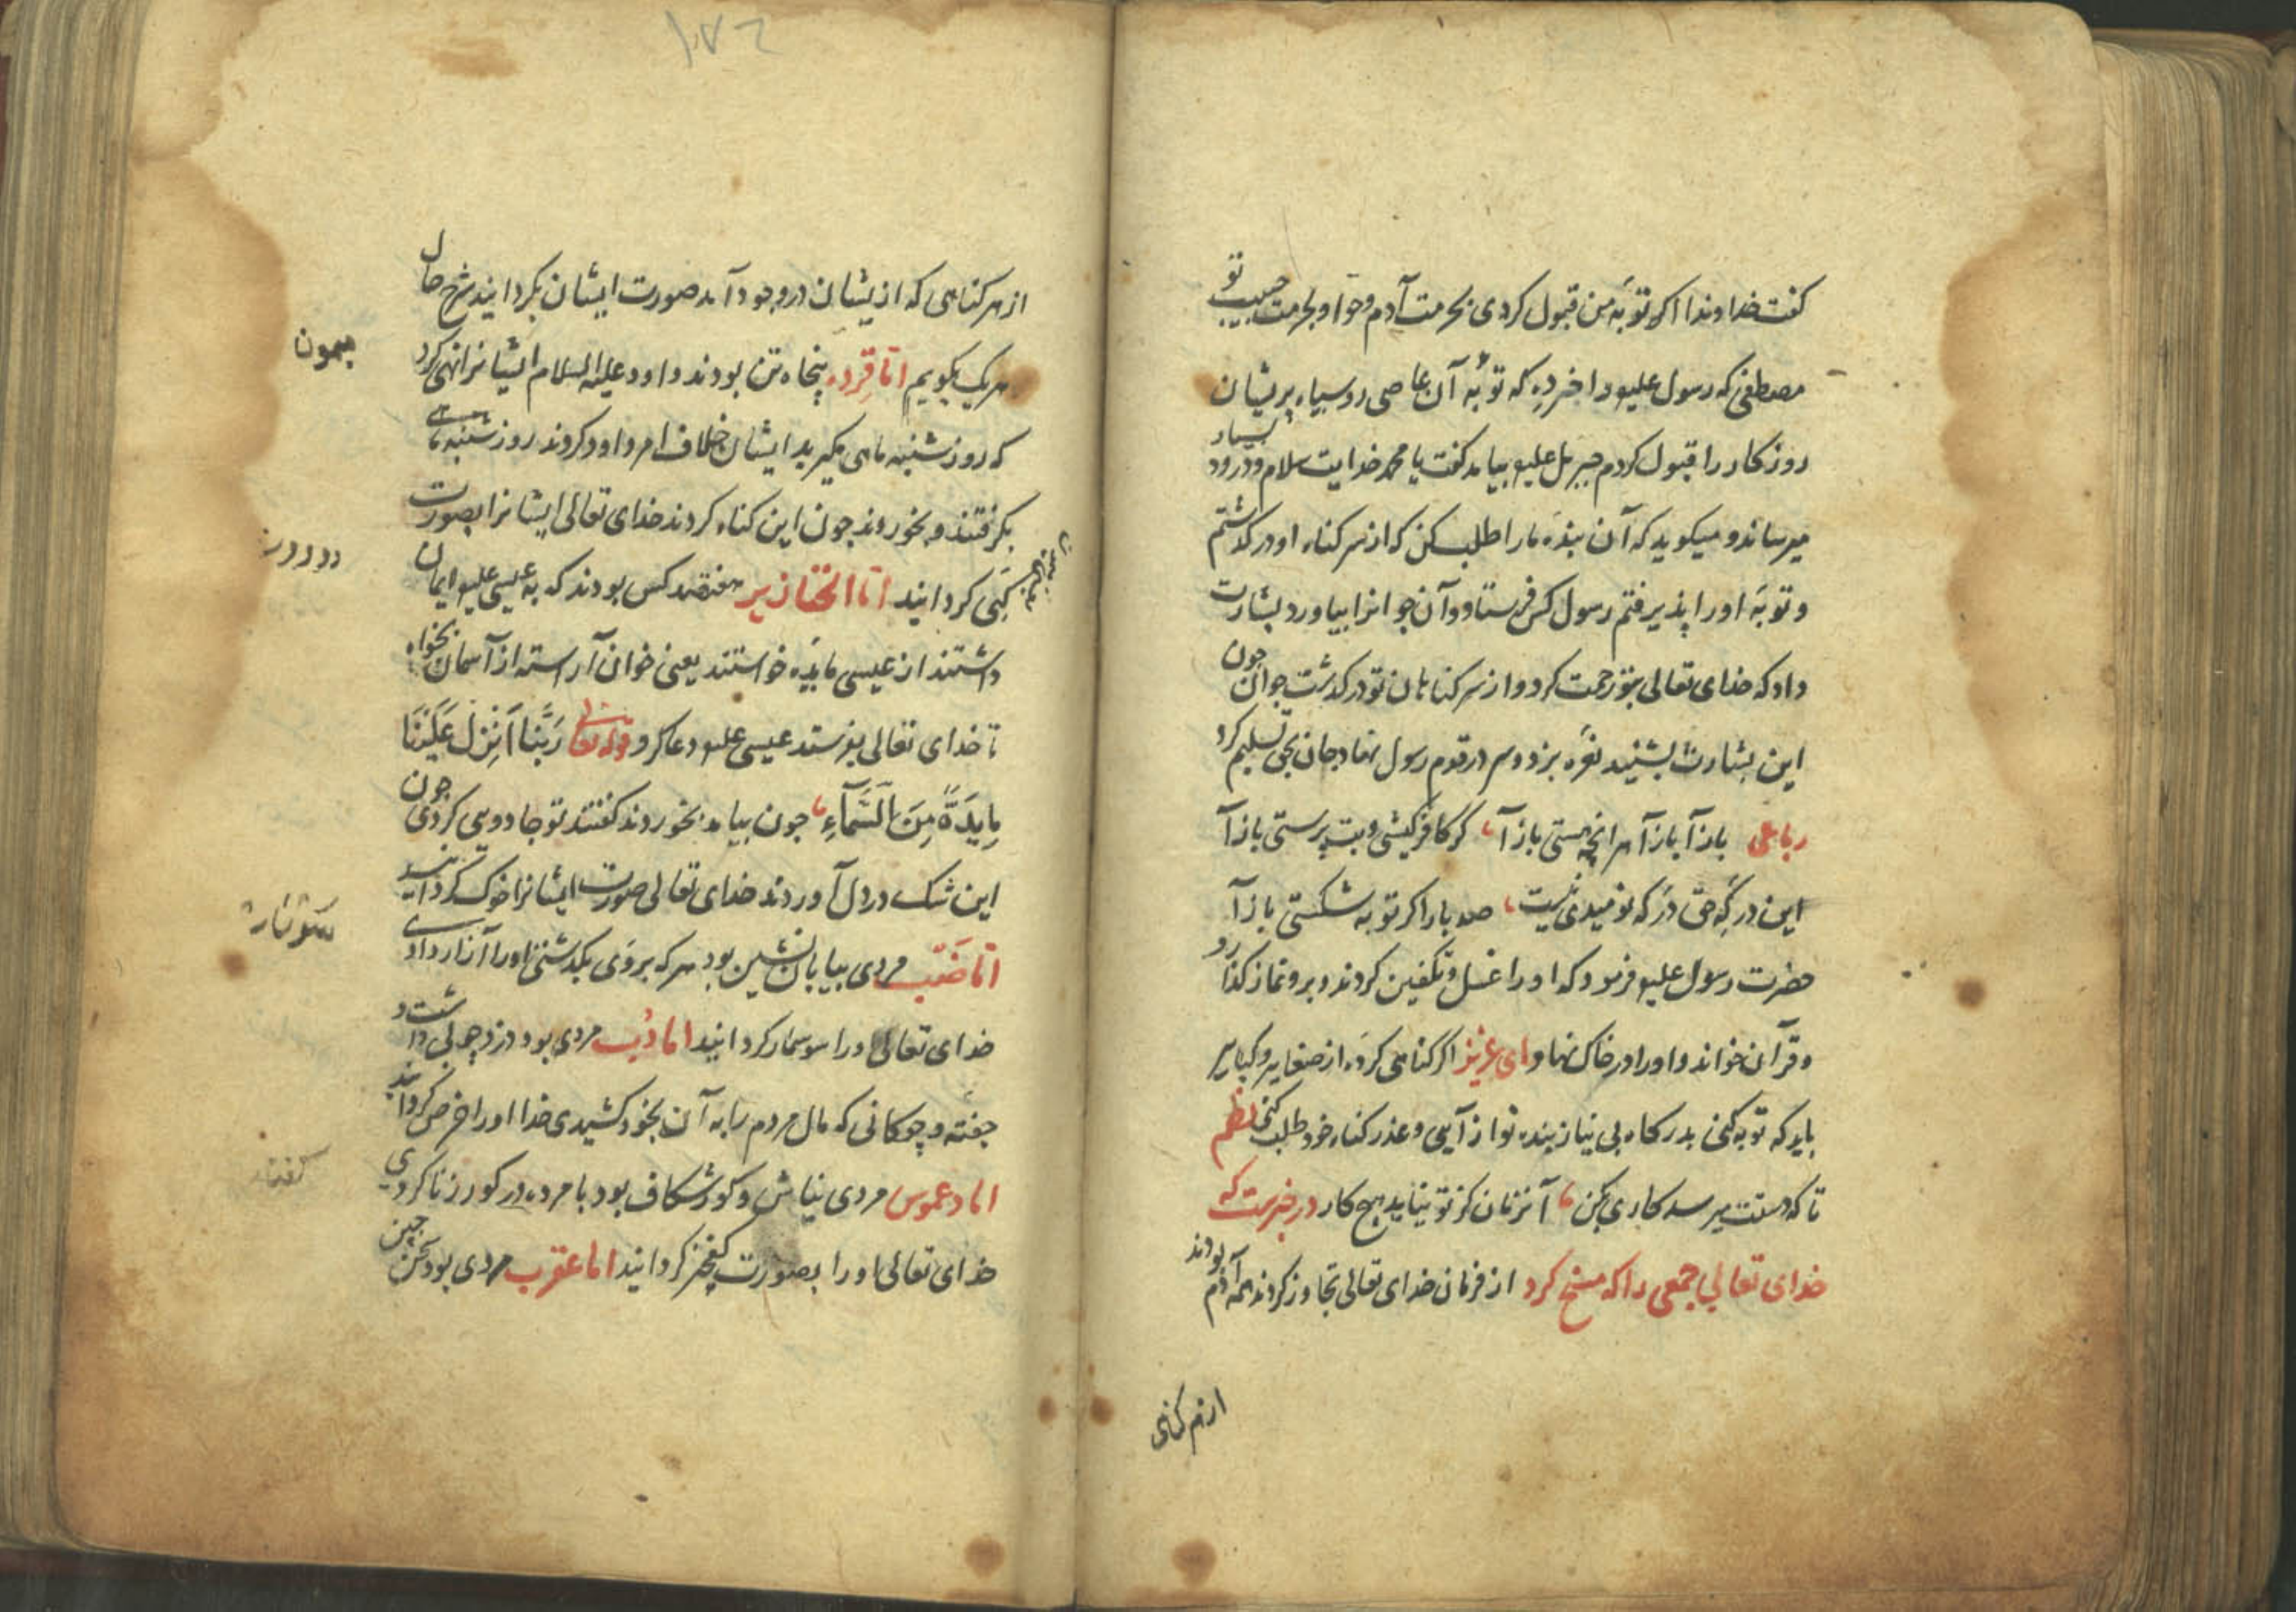 کفت خداوندا اکر توبهٔ من قبول کردی بحرمت آدم و حوا و بحرمت حبیب تو
مصطفی که رسول علیه را خبر ده که توبهٔ آن عاصی روسیاه پریشان
روزکار را قبول کردم جبریل علیه بیامد کفت یا محمد خدایت سلام و درود بسیار
میرساند و میکوید که آن بندهٔ ما را طلب کن که از سر کناه او درکذشتم
و توبهٔ او را پذیرفتم رسول کس فرستاد و آن جوانرا بیاورد بشارت
داد که خدای تعالی بتو رحمت کرد و از سر کناهان تو درکذشت جوان چون
این بشارت بشنید نعرهٔ بزد و سر در قدم رسول نهاد جان بحق تسلیم کرد
رباعی باز آ باز آ هر انچه هستی باز آ کر کافر کیشی و بت پرستی باز آ
این درکه حق درکه نومیدی نیست صد بار اکر توبه شکستی باز آ
حضرت رسول علیه فرمود که او را غسل و تکفین کردند و برو نماز کذارد
و قرآن خواند و او را در خاک نهاد ای عزیز اکر کناهی کردهٔ از صغایر و کبایر
باید که توبه کنی بدرکاه بی نیاز بنده نواز آیی و عذر کناه خود طلب کنی نظم
تا که دستت میرسد کاری بکن آنزمان کز تو نیاید هیچ کار در خبرست که
خدای تعالی جمعی را که مسخ کرد از فرمان خدای تعالی تجاوز کردند همه آدم بودند
از هر کناهی
۱۸۲
از هر کناهی که از یشان در وجود آمد صورت ایشان بکردانید شرح حال
هر یک بکویم اما قرده پنجاه تن بودند داود علیه السلام ایشانرا نهی کرد
میمون
که روز شنبه ماهی مکیرید ایشان خلاف امر داود کردند روز شنبه ماهی
بکرفتند و بخوردند چون این کناه کردند خدای تعالی ایشانرا بصورت
کپی کردانید اما الخنازیر هفتصد کس بودند که به عیسی علیه ایمان
داشتند از عیسی مایده خواستند یعنی خوان آراسته از آسمان بخواه
تا خدای تعالی بفرستد عیسی علیه دعا کرد قوله تعالی رَبَّنا اَنزِل عَلَینَا
مایِدَةً مِنَ السَّمآءِ چون بیامد بخوردند کفتند تو جادویی کردی چون
این شک در دل آوردند خدای تعالی صورت ایشانرا خوک کردانید
اما ضَبّ مردی بیابان نشین بود هر که بر وی بکذشتی او را آزار دادی
خدای تعالی او را سوسمار کردانید اما دُب مردی بود دزد چوبی داشت
جفته و چوکانی که مال مردم را به آن بخود کشیدی خدا او را خرس کردانید
اما دعموس مردی نباش و کور شکاف بود با مرده در کور زنا کردی
خدای تعالی او را بصورت کفچلیز کردانید اما عقرب مردی بود سخن چین